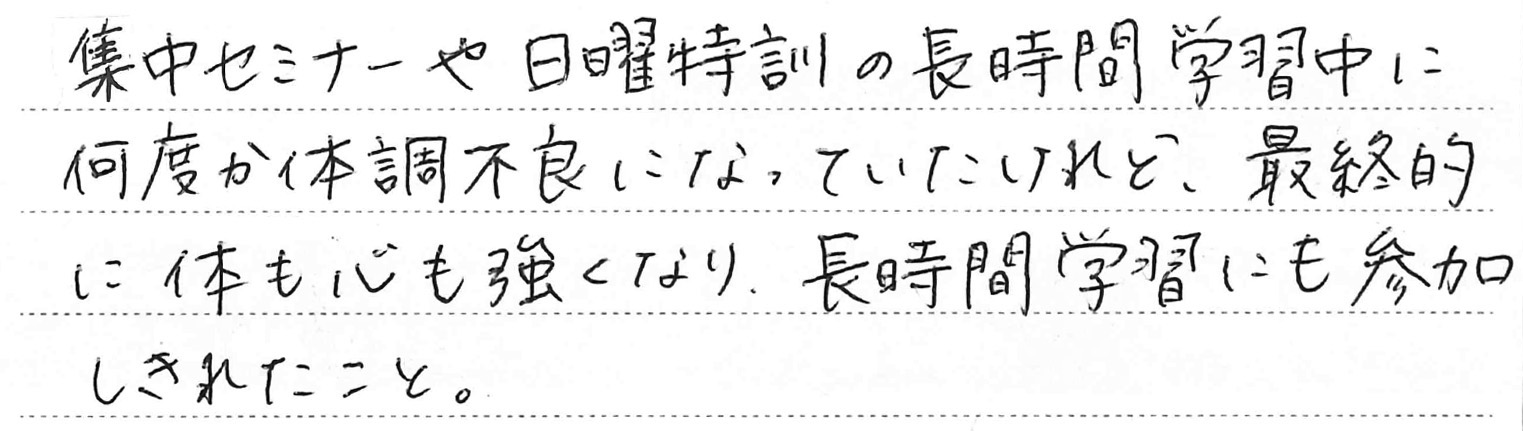 集中セミナーや日曜特訓の長時間学習中に
何度か体調不良になっていたけれど、最終的
に体も心も強くなり、長時間学習にも参加
しきれたこと。